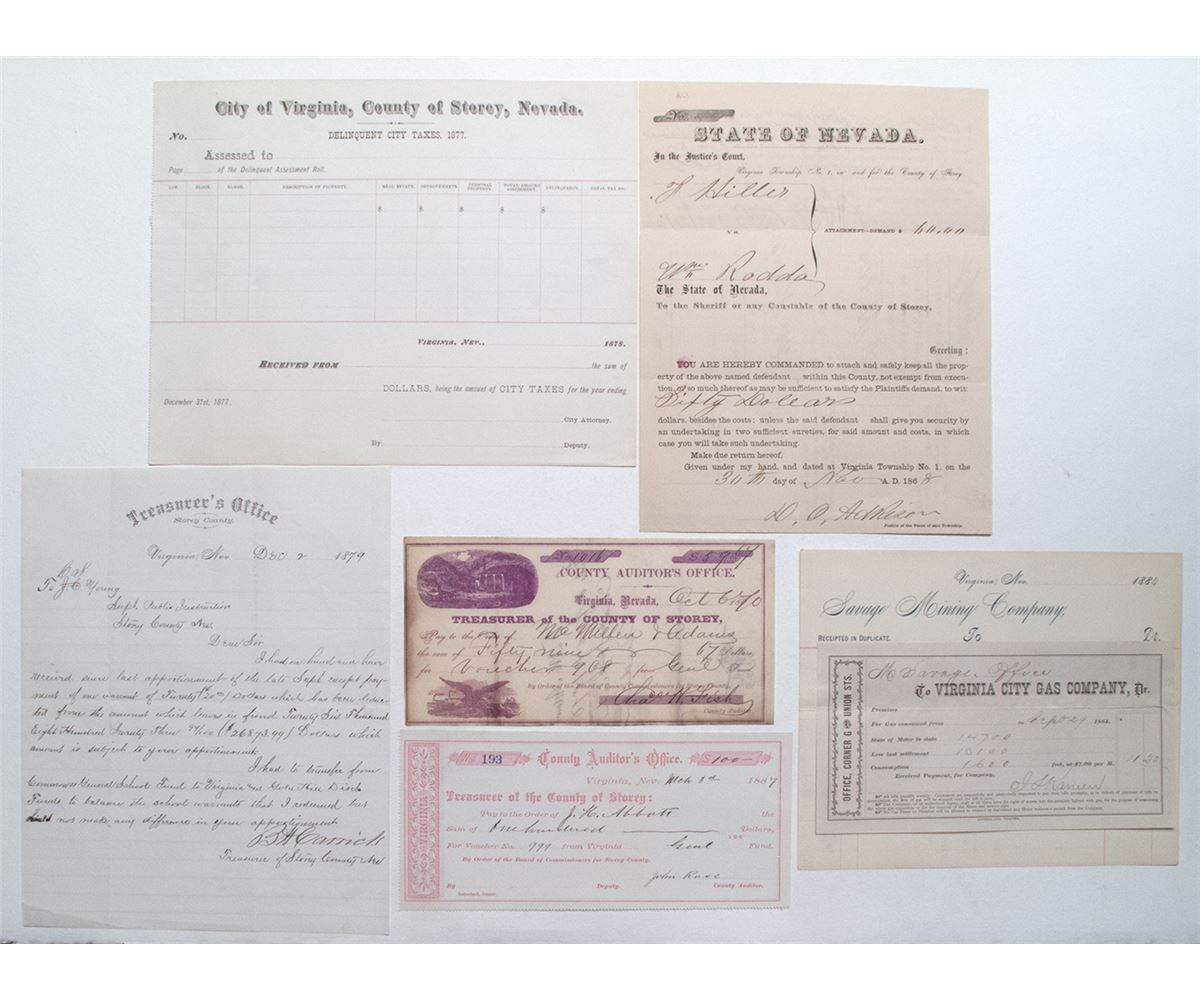 City of Virginia, County of Storey, Nevada.
No.
DELINQUENT CITY TAXES, 1877.
Assessed to
Page of the Delinquent Assessment Roll.
LOT. BLOCK. RANGE. DESCRIPTION OF PROPERTY. REAL ESTATE. IMPROVEMENTS. PERSONAL PROPERTY. TOTAL AMOUNT ASSESSMENT. DELINQUENCY. TOTAL TAX
$ $ $ $ $
VIRGINIA, NEV., 1878.
RECEIVED FROM the sum of
DOLLARS, being the amount of CITY TAXES for the year ending
December 31st, 1877.
City Attorney.
By Deputy.
No.
STATE OF NEVADA.
In the Justice's Court,
Virginia Township No. 1, in and for the County of Storey
Hiller
VS.
ATTACHMENT—DEMAND $
Wm Rodda
The State of Nevada,
To the Sheriff or any Constable of the County of Storey,
Greeting:
YOU ARE HEREBY COMMANDED to attach and safely keep all the prop-
erty of the above named defendant within this County, not exempt from execu-
tion, or so much thereof as may be sufficient to satisfy the Plaintiffs demand, to wit:
Fifty Dollars
dollars, besides the costs; unless the said defendant shall give you security by
an undertaking in two sufficient sureties, for said amount and costs, in which
case you will take such undertaking.
Make due return hereof.
Given under my hand, and dated at Virginia Township No. 1, on the
30th day of Nov A. D. 1868
D. O. Adkison
Justice of the Peace of said Township.
Treasurer's Office
Storey County.
Virginia, Nev. Dec 2 1879
To Young
Supt Public Instruction
Story County Nev.
Dear Sir
I had on hand and have
received since last apportionment of the late Supt except pay-
ment of one warrant of Twenty Dollars which has been deduc-
ted from the amount which leaves in fund Twenty Six Thousand
Eight Hundred Seventy Three 99/100 ($26873.99) Dollars which
amount is subject to your apportionment
I had to transfer from
Common General School Fund to Virginia and Gold Hill Disch
Funds to balance the school warrants that I redeemed but
not make any difference in your apportionment
Carrick
Treasurer of Story County Nev
No 1016 $59 67
COUNTY AUDITOR'S OFFICE.
Virginia, Nevada, Oct 6 1870
TREASURER of the COUNTY OF STOREY,
Pay to the Order of McMillen & Adams
the sum of Fifty nine & 67 Dollars,
for Voucher 968 Genl Fund
By Order of the Board of County Commissioners for Storey County.
Chas H. Fish
County Auditor
VIRGINIA
No. 193 County Auditor's Office. $100—
Virginia, Nev. Mch 8th 1887
Treasurer of the County of Storey:
Pay to the Order of J. H. Abbott the
Sum of One hundred Dollars,
For Voucher No. 999 from Virginia Genl Fund.
By Order of the Board of Commissioners for Storey County.
John Rose
By Deputy. County Auditor.
Virginia, Nev. 188
Savage Mining Company,
RECEIPTED IN DUPLICATE. To Dr.
OFFICE, CORNER G AND UNION STS.
Savage Office
To VIRGINIA CITY GAS COMPANY, Dr.
Premises
For Gas consumed from to Sept 29 188
State of Meter to date 14700
Less last settlement 13100
Consumption 1600 feet, at $7.00 per M.
Received Payment, for Company,